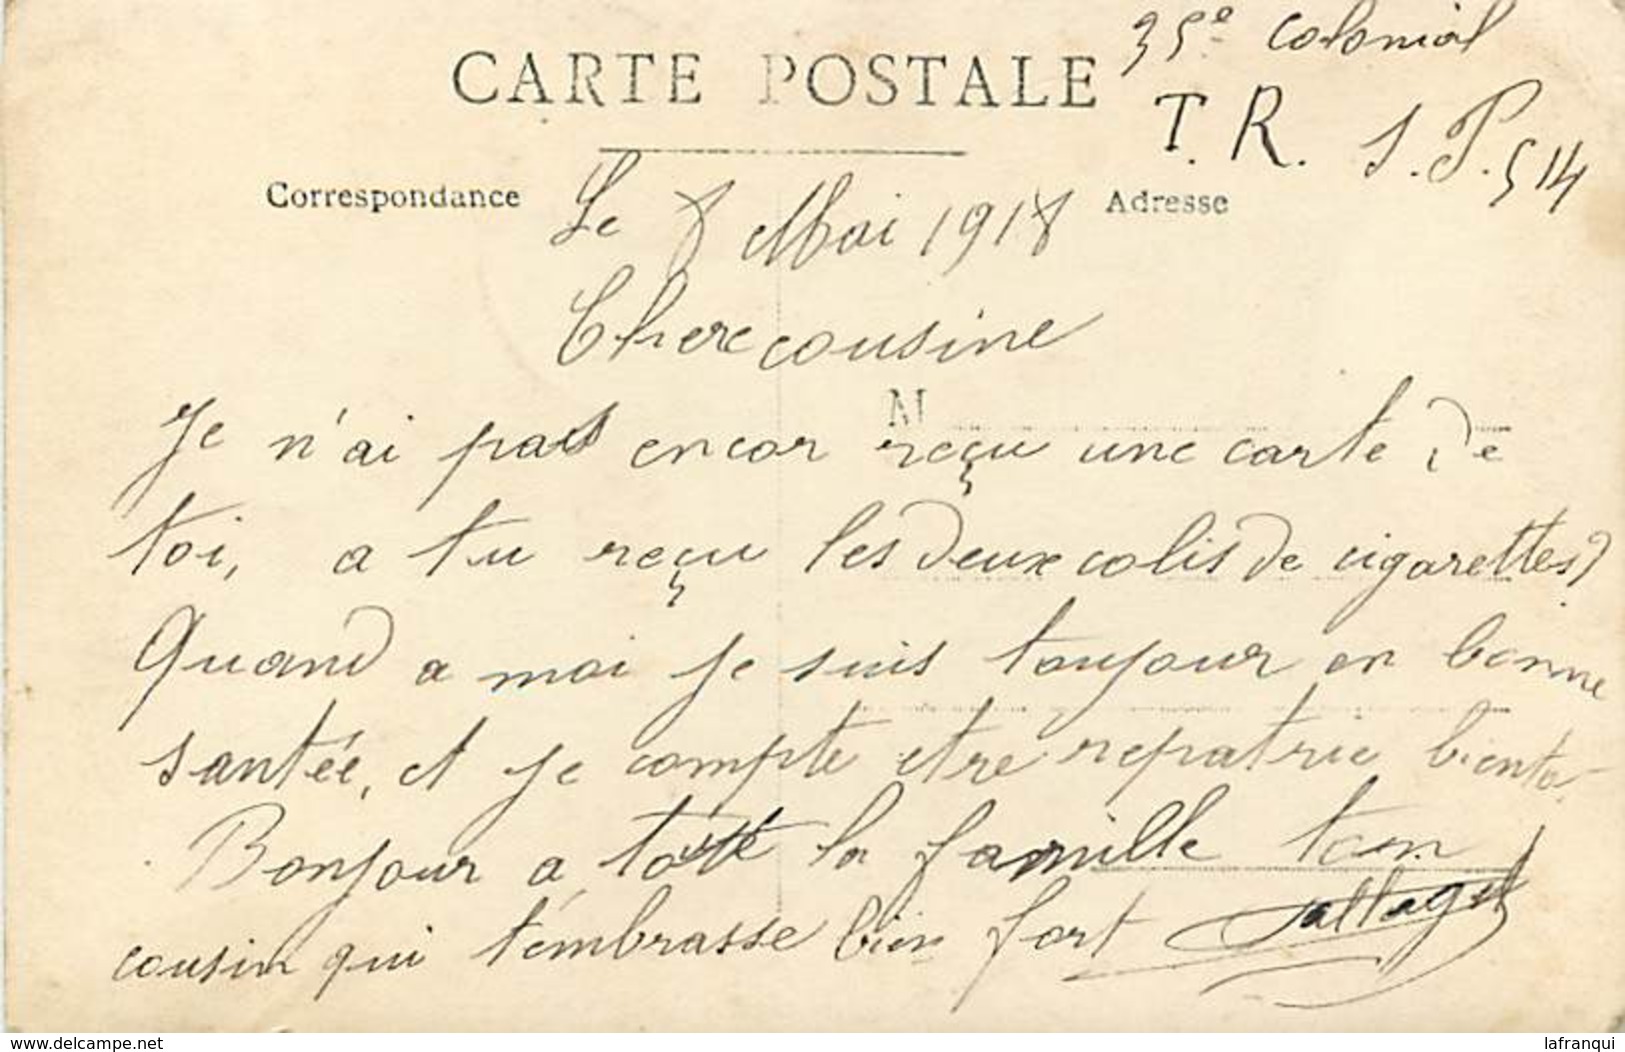 35e colonial
CARTE POSTALE
T.R. S.P. 514
Correspondance
Adresse
Le 8 Mai 1918
Chere cousine
M
Je n'ai pas encor reçu une carte de
toi, a tu reçu les deux colis de cigarettes?
Quand a moi je suis toujour en bonne
santée, et je compte etre repatrie biento
Bonjour a toute la famille ton
cousin qui t'embrasse bien fort
www.delcampe.net
lafranqui